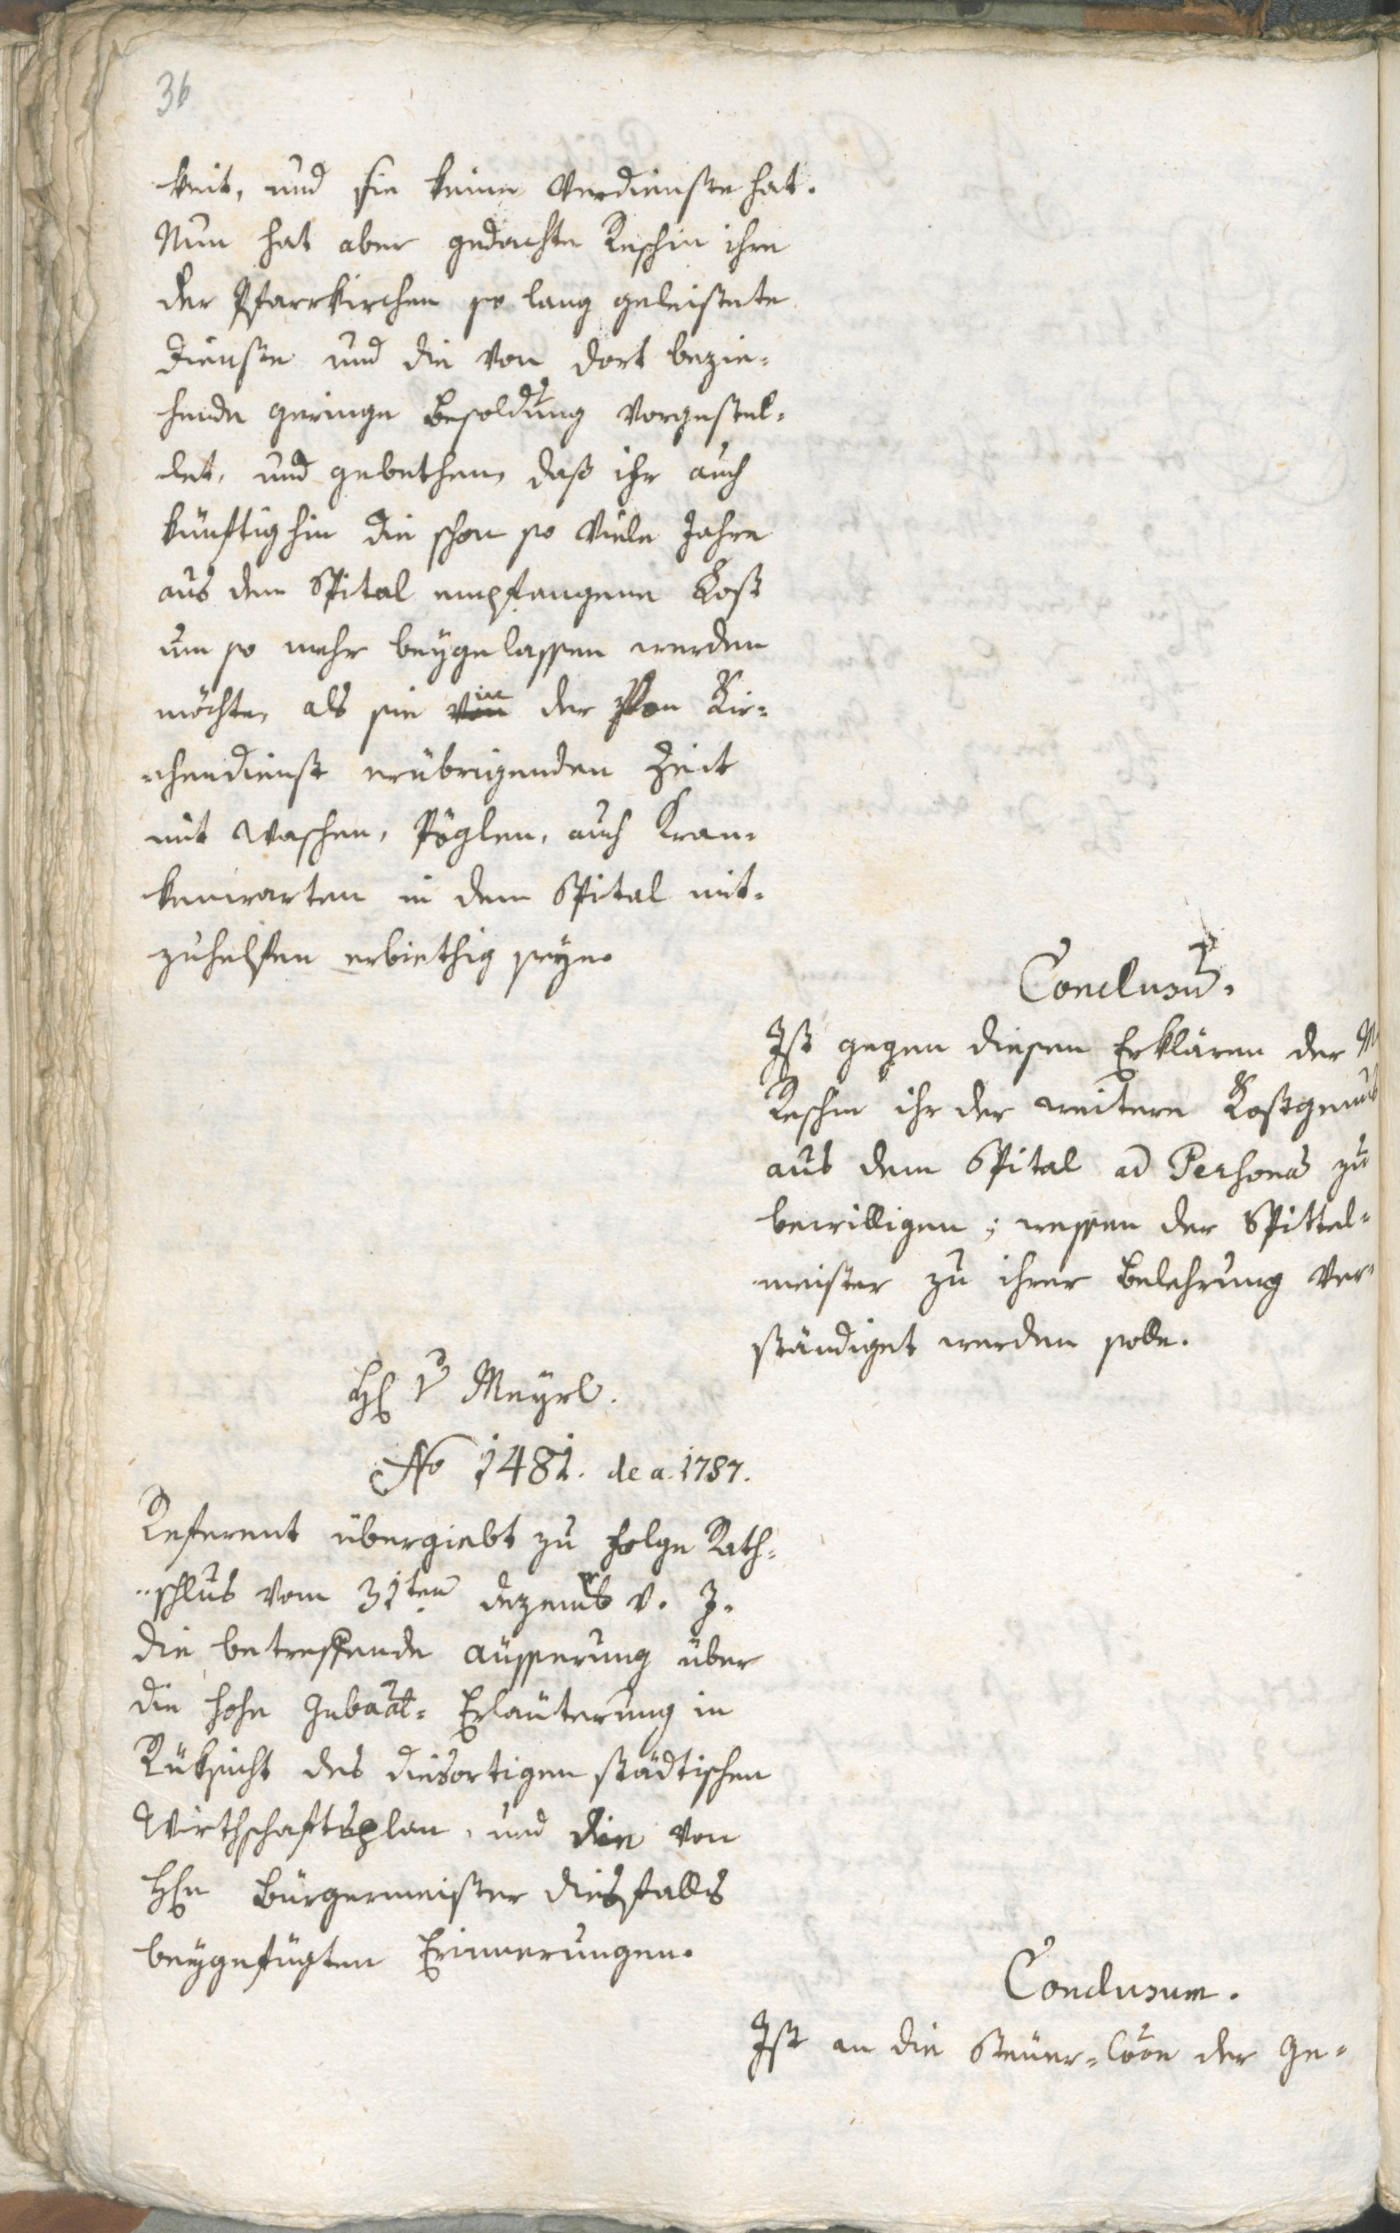 36
keit, und sie keine Verdienste hat.
Nun hat aber gedachte Reschin ihre
der Pfarrkirchen so lang geleistete
Dienste und die von dort bezie-
hende geringe Besoldung vorgestel-
let, und gebethen, daß ihr auch
künftighin die schon so viele Jahre
aus dem Spital empfangene Kost
um so mehr beygelassen werden
möchte, als sie in der von Kir-
chendienst erübrigenden Zeit
mit Waschen, Pöglen, auch Kran-
kenwarten in dem Spital mit-
zuhelfen erbiethig seye.
Conclusum.
Ist gegen diesen Erklären der
Reschin ihr der weitere Kostgenuß
aus dem Spital ad Personam zu
bewilligen; wessen der Spittel-
meister zu ihrer Belehrung ver-
ständiget werden solle.
H: v Meyrl.
No 1481. de a. 1787.
Referent übergiebt zu Folge Rath-
schlus vom 31ten Dezemb v. J.
die betreffende äusserung über
die hohe Erläuterung in
Rüksicht des diesortigen städtischen
Wirthschaftsplan, und die von
Hn Bürgermeister diesfalls
beygefügten Erinnerungen.
Conclusum.
Ist an die Steuer-Coon der Ge-